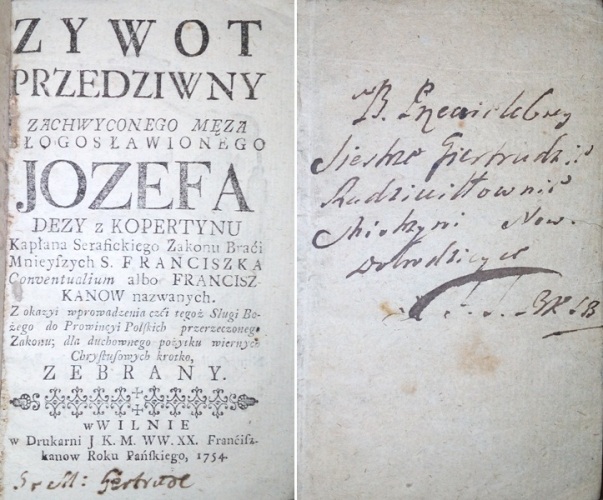 ZYWOT
PRZEDZIWNY
ZACHWYCONEGO MĘZA
BŁOGOSŁAWIONEGO
JOZEFA
DEZY z KOPERTYNU
Kapłana Serafickiego Zakonu Braći
Mnieyſzych S. FRANCISZKA
Conventualium albo FRANCISZ-
KANOW nazwanych.
Z okazyi wprowadzenia czći tegoż Slugi Bo-
żego do Prowincyi Polſkich przerzeczonego
Zakonu; dla duchownego pożytku wiernych
Chryſtuſowych krotko,
ZEBRANY.
w WILNIE
w Drukarni J K. M. WW. XX. Franćiſz-
kanow Roku Pańſkiego, 1754.
S r M: Gertrude
Siestrze Giertrudzie
Radziwiłłownie
Now.